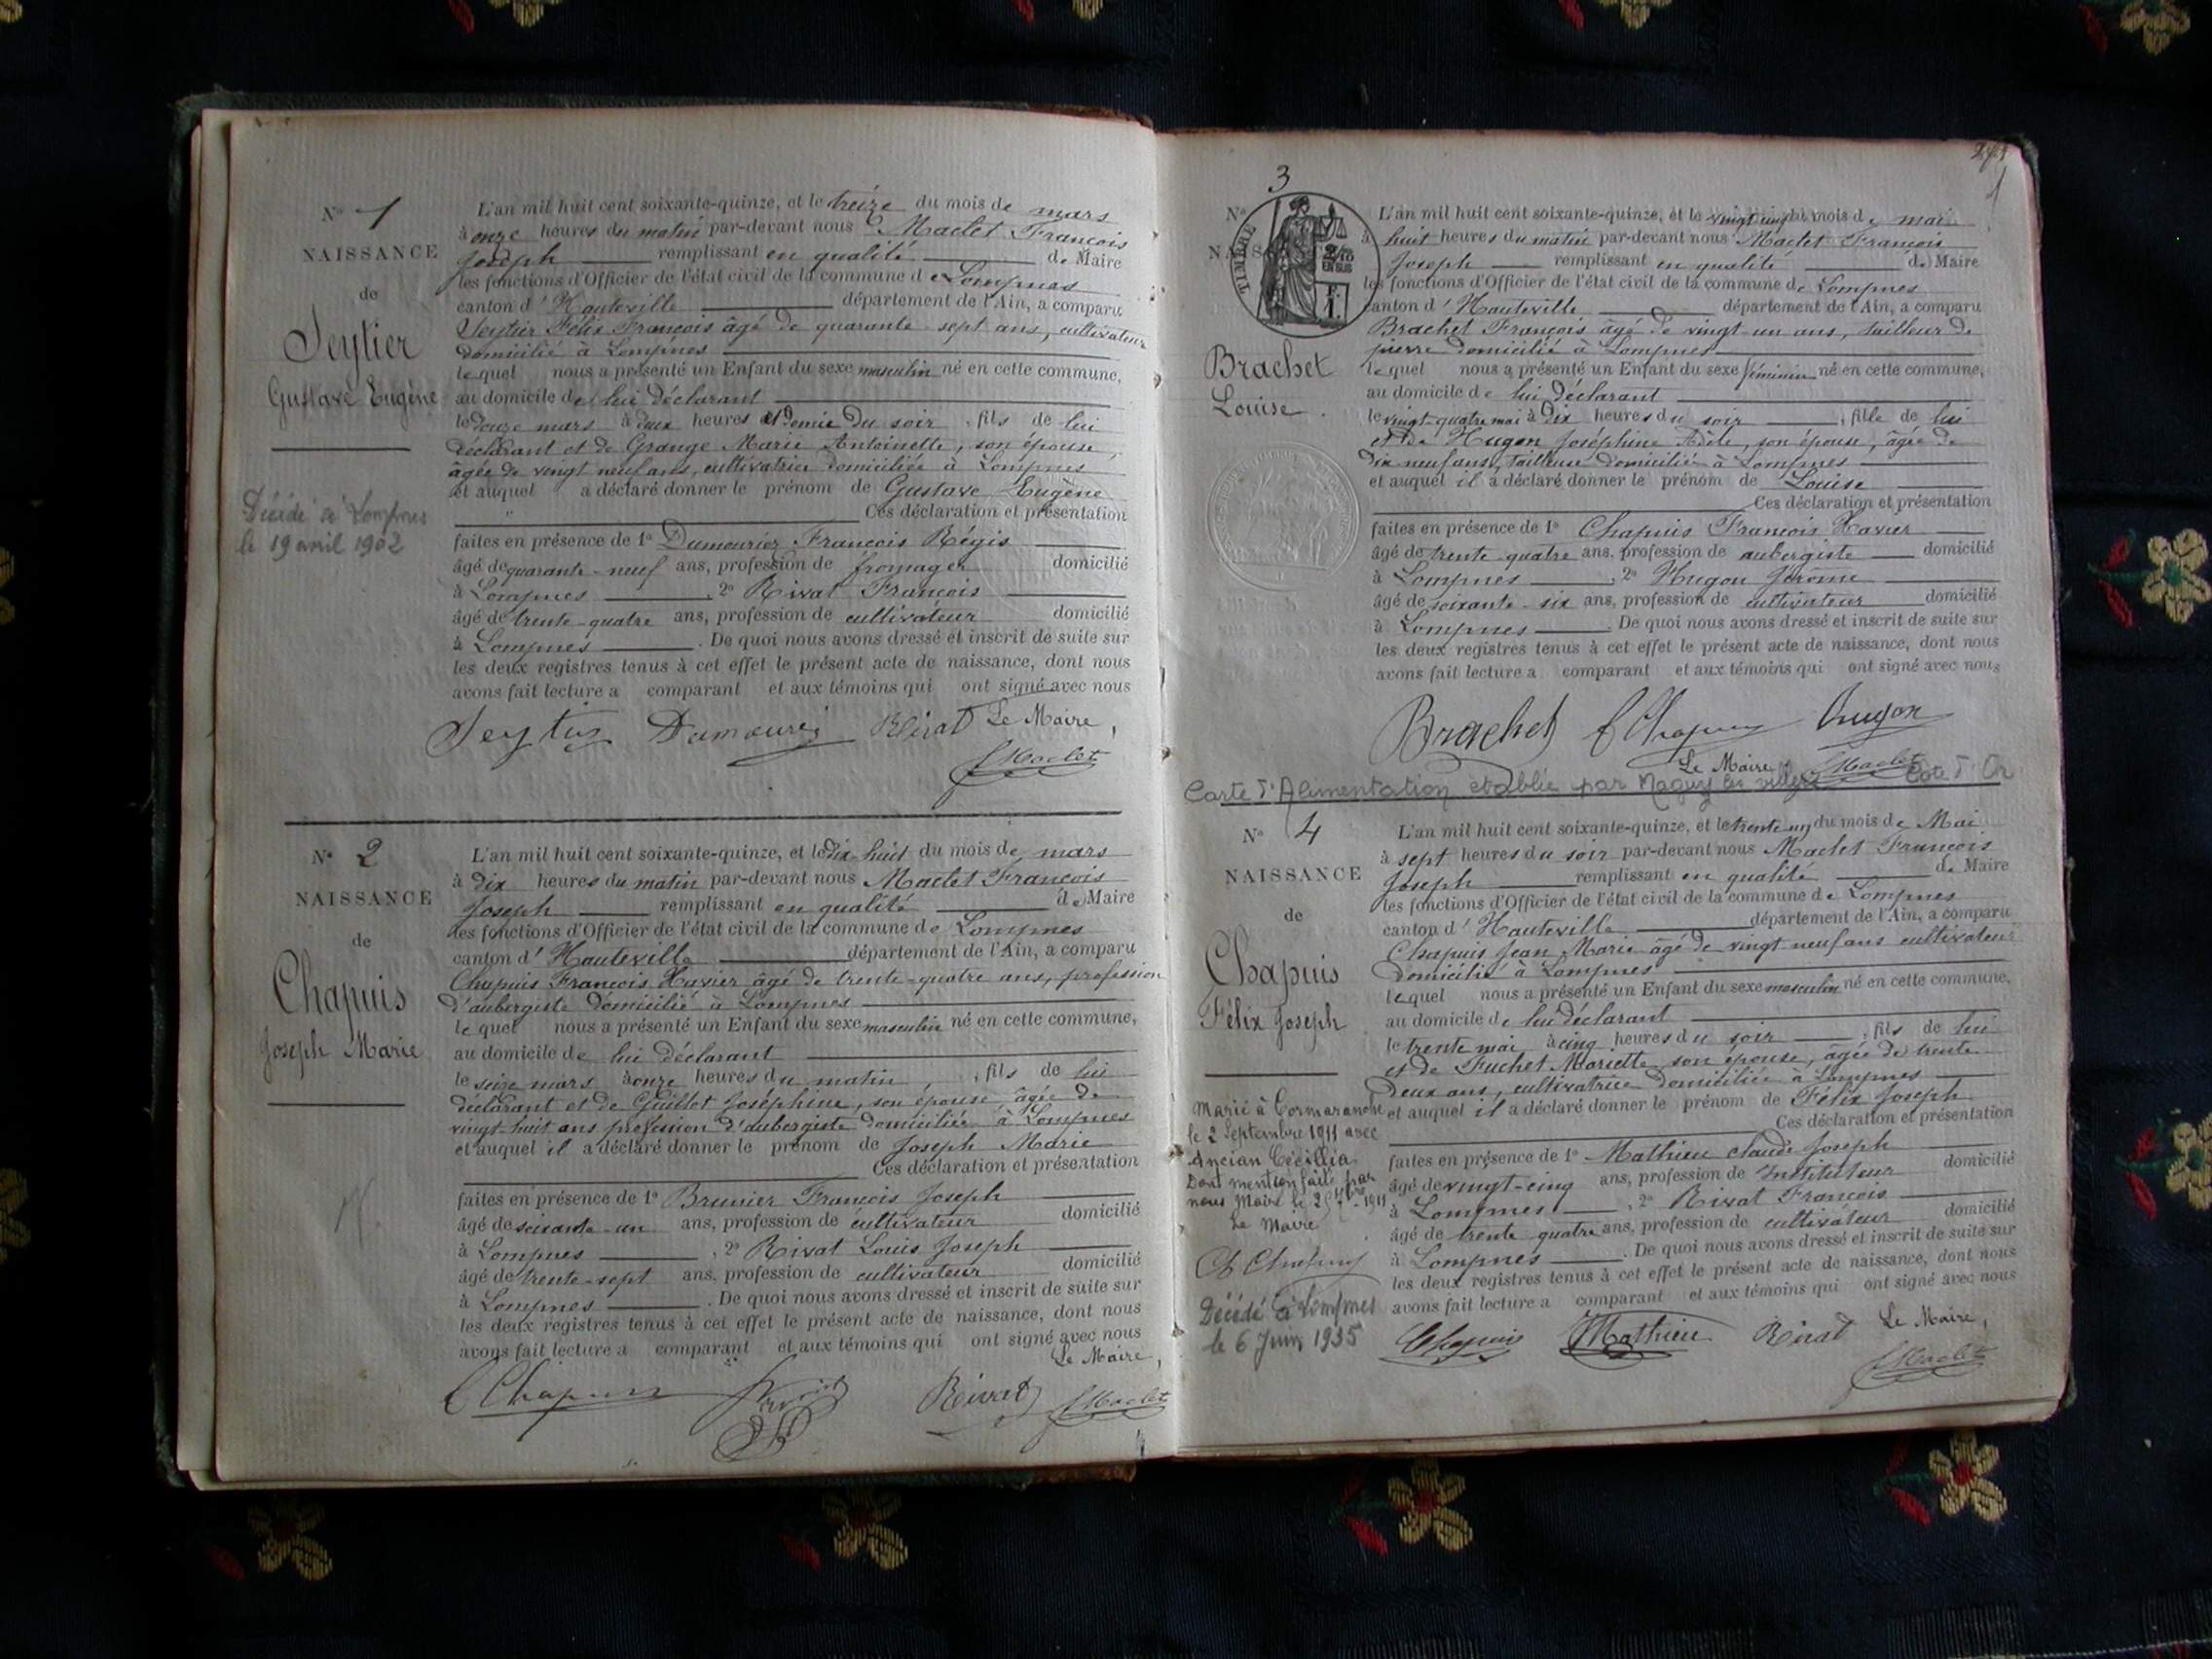 Nº 1
NAISSANCE
de
Seytier
Gustave Eugène
Décédé à Lompnes
le 19 avril 1902
L'an mil huit cent soixante-quinze, et le treize du mois de mars
à onze heures du matin par-devant nous Maclet François
Joseph remplissant en qualité de Maire
les fonctions d'Officier de l'état civil de la commune de Lompnes
canton d'Hauteville département de l'Ain, a comparu
Seytier Félix François âgé de quarante sept ans, cultivateur
domicilié à Lompnes
lequel nous a présenté un Enfant du sexe masculin né en cette commune,
au domicile de lui déclarant
le douze mars à deux heures et demie du soir, fils de lui
déclarant et de Grange Marie Antoinette, son épouse,
âgée de vingt neuf ans, cultivatrice domiciliée à Lompnes
et auquel a déclaré donner le prénom de Gustave Eugène
Ces déclaration et présentation
faites en présence de 1º Dumourier François Régis
âgé de quarante-neuf ans, profession de fromager domicilié
à Lompnes, 2º Rivat François
âgé de trente-quatre ans, profession de cultivateur domicilié
à Lompnes. De quoi nous avons dressé et inscrit de suite sur
les deux registres tenus à cet effet le présent acte de naissance, dont nous
avons fait lecture a comparant et aux témoins qui ont signé avec nous
Seytier Dumourier Rivat Le Maire,
Maclet
Nº 2
NAISSANCE
de
Chapuis
Joseph Marie
L'an mil huit cent soixante-quinze, et le dix-huit du mois de mars
à dix heures du matin par-devant nous Maclet François
Joseph remplissant en qualité de Maire
les fonctions d'Officier de l'état civil de la commune de Lompnes
canton d'Hauteville département de l'Ain, a comparu
Chapuis François Xavier âgé de trente-quatre ans, profession
d'aubergiste domicilié à Lompnes
lequel nous a présenté un Enfant du sexe masculin né en cette commune,
au domicile de lui déclarant
le seize mars à onze heures du matin, fils de lui
déclarant et de Guillot Joséphine, son épouse âgée de
vingt-huit ans profession d'aubergiste domiciliée à Lompnes
et auquel il a déclaré donner le prénom de Joseph Marie
Ces déclaration et présentation
faites en présence de 1º Brunier François Joseph
âgé de soixante-un ans, profession de cultivateur domicilié
à Lompnes, 2º Rivat Louis Joseph
âgé de trente-sept ans, profession de cultivateur domicilié
à Lompnes. De quoi nous avons dressé et inscrit de suite sur
les deux registres tenus à cet effet le présent acte de naissance, dont nous
avons fait lecture a comparant et aux témoins qui ont signé avec nous
Le Maire,
Chapuis Rivat Maclet
3
Nº
TIMBRE
Brachet
Louise
L'an mil huit cent soixante-quinze, et le vingt cinq du mois de mai
à huit heures du matin par-devant nous Maclet François
Joseph remplissant en qualité de Maire
les fonctions d'Officier de l'état civil de la commune de Lompnes
canton d'Hauteville département de l'Ain, a comparu
Brachet François âgé de vingt un ans, tailleur de
pierre domicilié à Lompnes
lequel nous a présenté un Enfant du sexe féminin né en cette commune,
au domicile de lui déclarant
le vingt-quatre mai à dix heures du soir, fille de lui
et de Hugon Joséphine Adèle, son épouse, âgée de
dix neuf ans, tailleuse domiciliée à Lompnes
et auquel il a déclaré donner le prénom de Louise
Ces déclaration et présentation
faites en présence de 1º Chapuis François Xavier
âgé de trente quatre ans, profession de aubergiste domicilié
à Lompnes, 2º Hugon Jérôme
âgé de soixante-six ans, profession de cultivateur domicilié
à Lompnes. De quoi nous avons dressé et inscrit de suite sur
les deux registres tenus à cet effet le présent acte de naissance, dont nous
avons fait lecture a comparant et aux témoins qui ont signé avec nous
Brachet Chapuis Hugon
Le Maire Maclet
Carte d'Alimentation établie par Magny les villers Côte d'Or
Nº 4
NAISSANCE
de
Chapuis
Félix Joseph
Marié à Cormaranche
le 2 Septembre 1911 avec
Ancian Cécillia
Dont mention faite par
nous Maire le 2 7bre 1911
Le Maire
Décédé à Lompnes
le 6 Juin 1935
L'an mil huit cent soixante-quinze, et le trente un du mois de Mai
à sept heures du soir par-devant nous Maclet François
Joseph remplissant en qualité de Maire
les fonctions d'Officier de l'état civil de la commune de Lompnes
canton d'Hauteville département de l'Ain, a comparu
Chapuis Jean Marie âgé de vingt neuf ans cultivateur
domicilié à Lompnes
lequel nous a présenté un Enfant du sexe masculin né en cette commune,
au domicile de lui déclarant
le trente mai à cinq heures du soir, fils de lui
et de Fuchet Mariette son épouse, âgée de trente
deux ans, cultivatrice domiciliée à Lompnes
et auquel il a déclaré donner le prénom de Félix Joseph
Ces déclaration et présentation
faites en présence de 1º Mathieu claude Joseph
âgé de vingt-cinq ans, profession de Instituteur domicilié
à Lompnes, 2º Rivat François
âgé de trente quatre ans, profession de cultivateur domicilié
à Lompnes. De quoi nous avons dressé et inscrit de suite sur
les deux registres tenus à cet effet le présent acte de naissance, dont nous
avons fait lecture a comparant et aux témoins qui ont signé avec nous
Chapuis Mathieu Rivat Le Maire,
Maclet